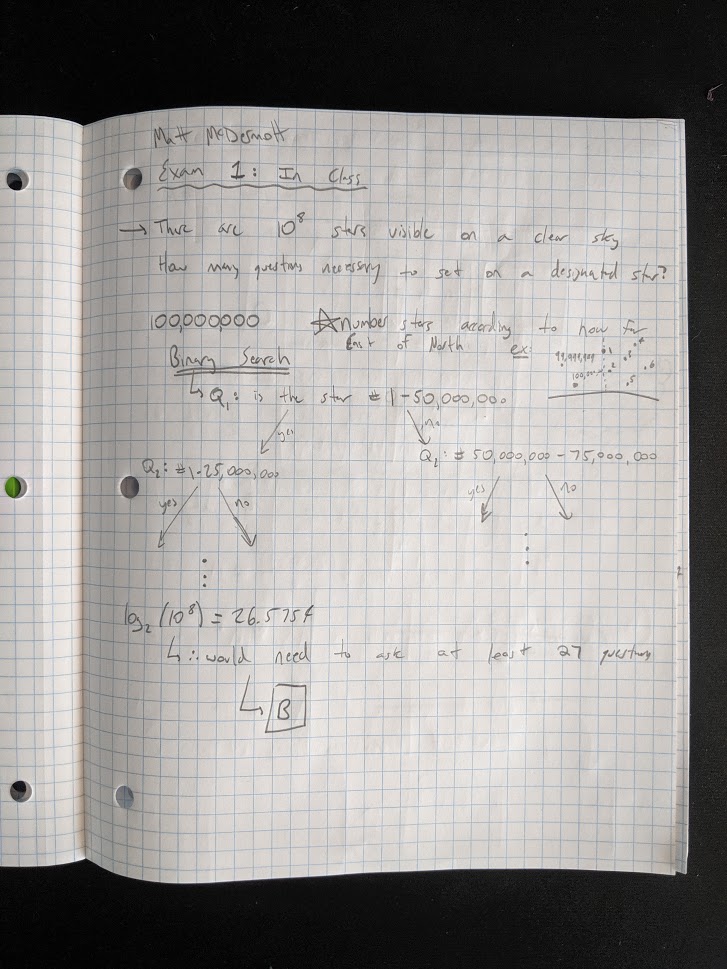 Matt McDermott
Exam 1: In Class
→ There are 10⁸ stars visible on a clear sky
How many questions necessary to set on a designated star?
100,000,000 ☆ number stars according to how far
East of North ex:
99,999,999 1 3 4
100,000,000 2 6
5
Binary Search
↳ Q₁: is the star # 1-50,000,000
yes no
Q₂: # 50,000,000 - 75,000,000
Q₂: # 1-25,000,000
yes no yes no
log₂(10⁸) = 26.5754
↳ ∴ would need to ask at least 27 questions
↳ B